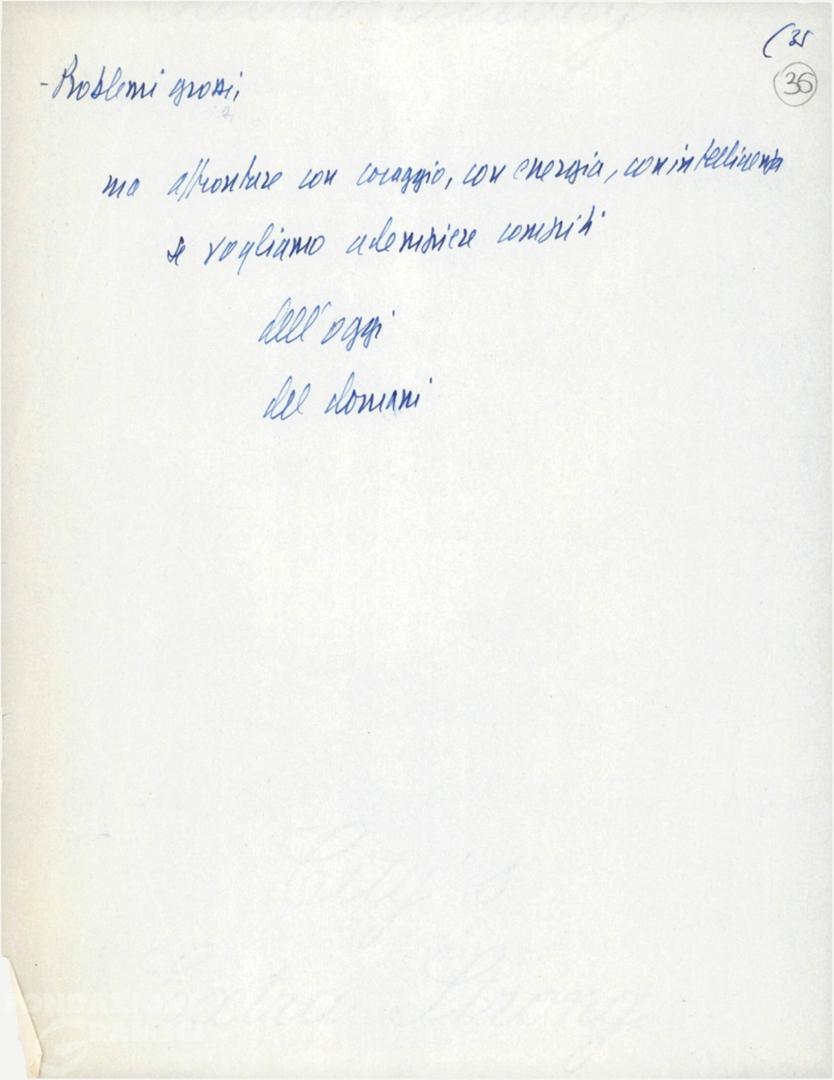 (35
36
- Problemi grossi,
ma affrontare con coraggio, con energia, con intelligenza
se vogliamo adempiere compiti
dell'oggi
del domani
City's
Extra Strong
FONDAZIONE
GRAMSCI